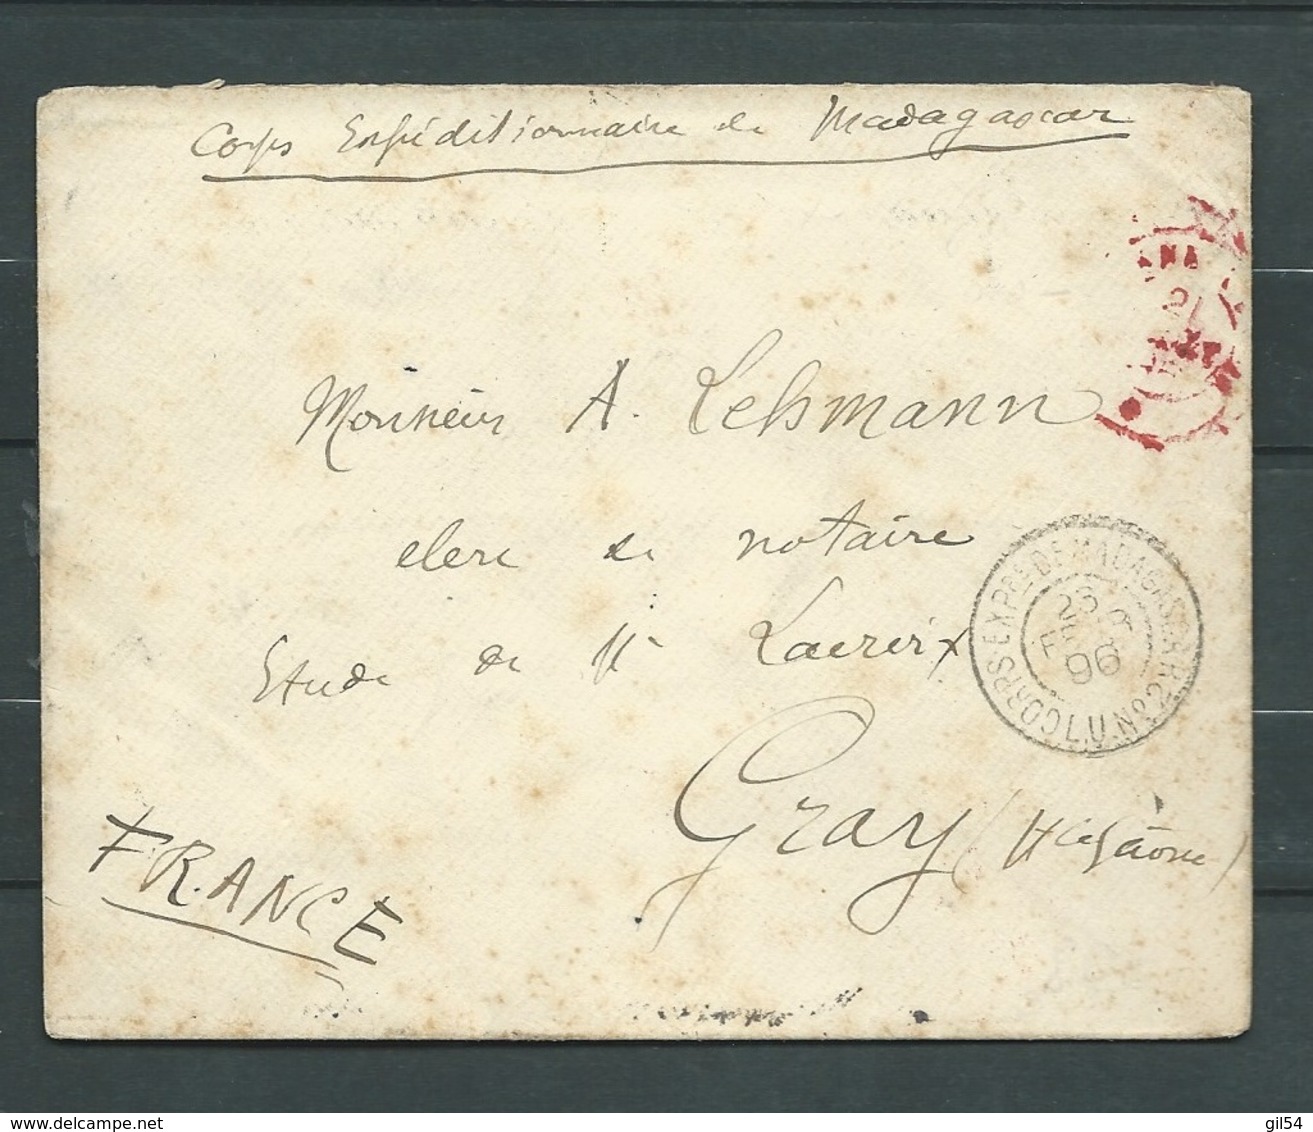 Corps Expéditionnaire de Madagascar
ANA
21
Monsieur A. Lehmann
clerc de notaire
Etude de Me Lacroix
Gray (Hte Saône)
FRANCE
CORPS EXPRE DE MADAGASCAR
23
FEVR
96
L.U. No 2
delcampe.net
gil54